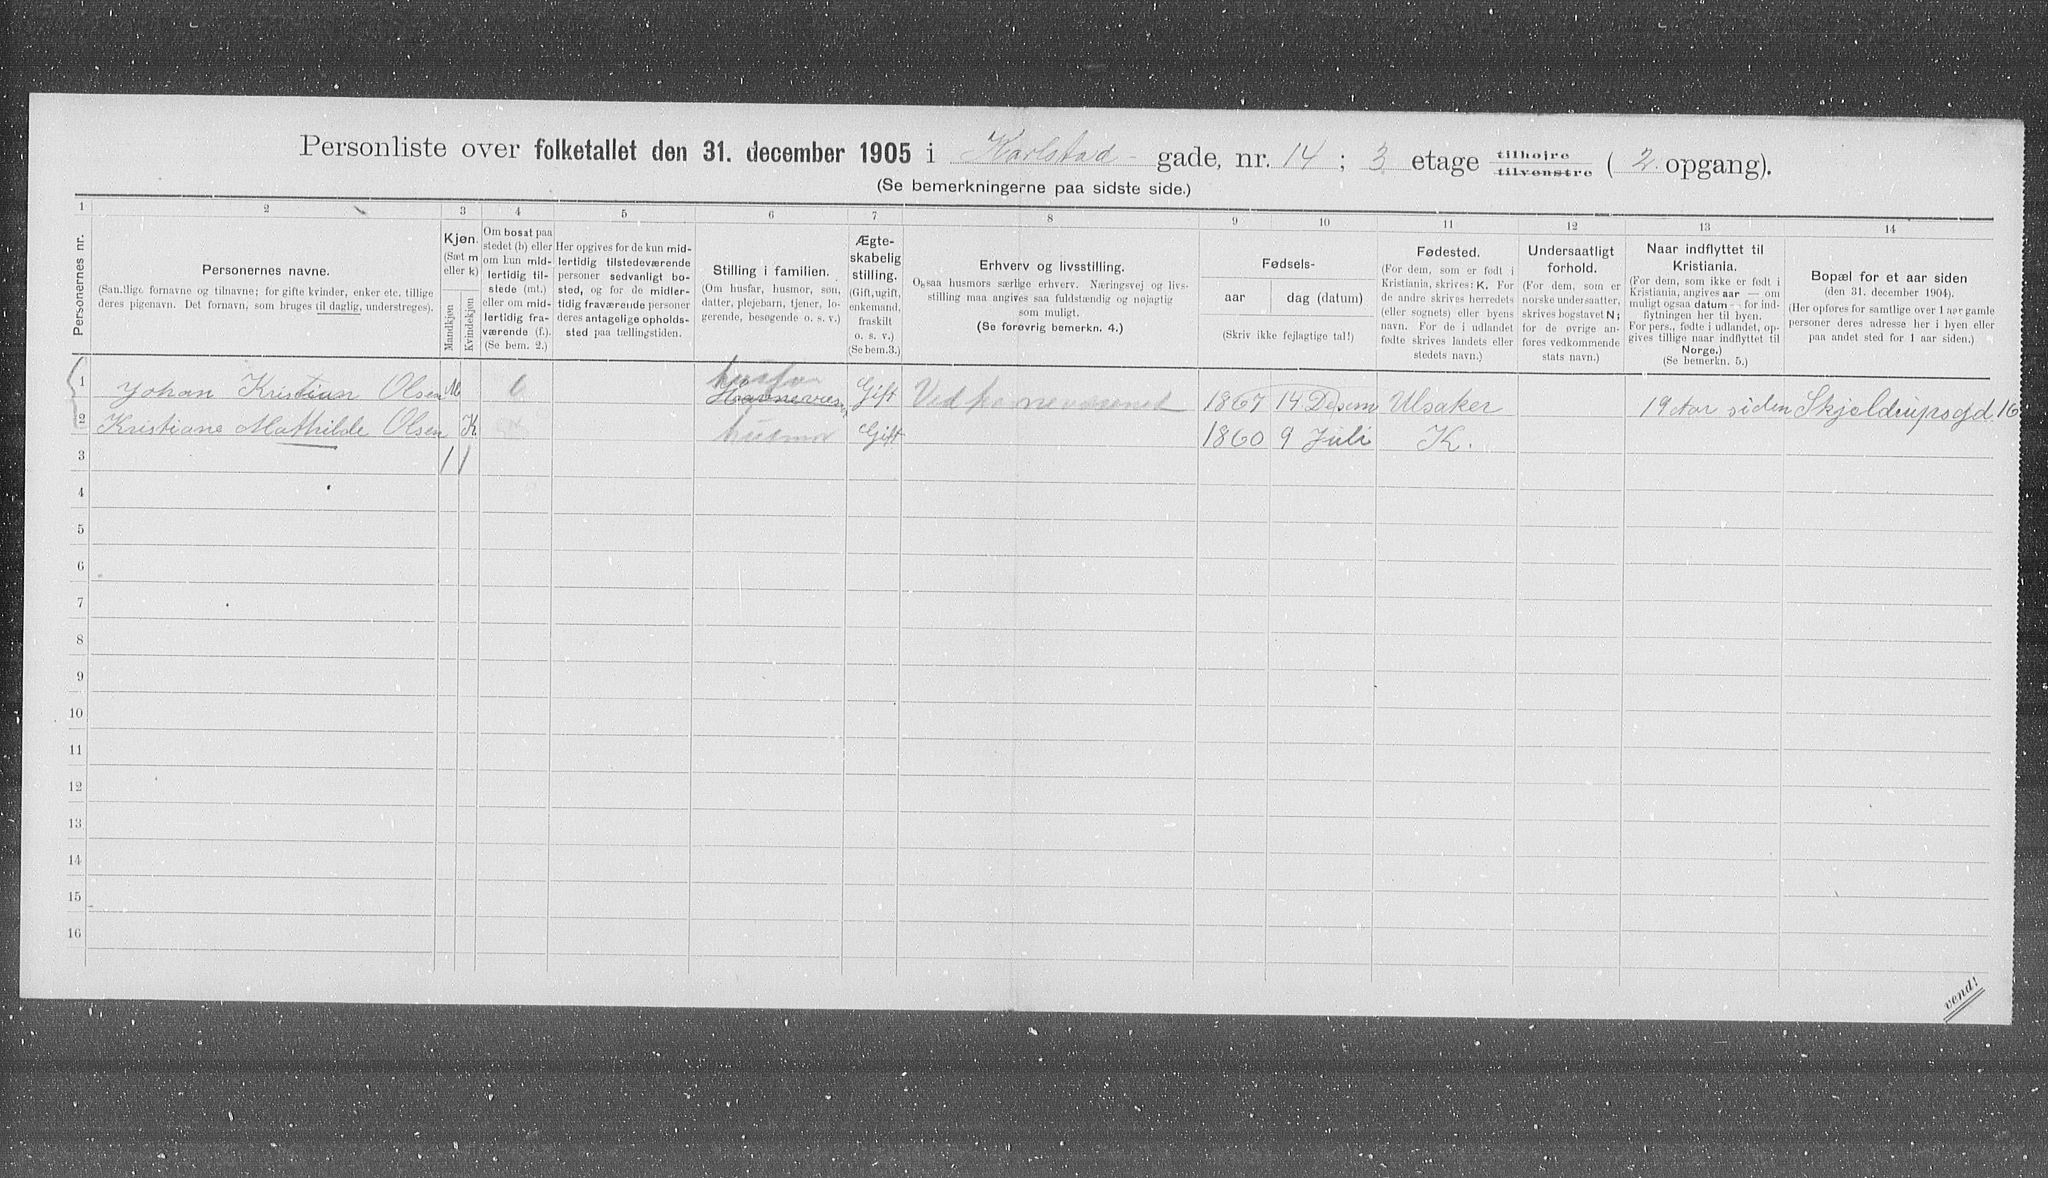 Personliste over folketallet den 31. december 1905 i Karlstad- gade, nr. 14 ; 3 etage tilhøjre tilvenstre ( 2. opgang).
(Se bemerkningerne paa sidste side.)
1 2 3 4 5 6 7 8 9 10 11 12 13 14
Personernes nr.
Personernes navne.
(Samtlige fornavne og tilnavne; for gifte kvinder, enker etc. tillige
deres pigenavn. Det fornavn, som bruges til daglig, understreges).
Kjøn.
(Sæt m
eller k)
Mandkjøn
Kvindekjøn
Om bosat paa
stedet (b) eller
om kun mid-
lertidig til-
stede (mt.)
eller om mid-
lertidig fra-
værende (f.).
(Se bem. 2.)
Her opgives for de kun mid-
lertidig tilstedeværende
personer sedvanligt bo-
sted, og for de midler-
tidig fraværende personer
deres antagelige opholds-
sted paa tællingstiden.
Stilling i familien.
(Om husfar, husmor, søn,
datter, plejebarn, tjener, lo-
gerende, besøgende o. s. v.)
Ægte-
skabelig
stilling.
(Gift, ugift,
enkemand,
fraskilt
o. s. v.)
(Se bem.3.)
Erhverv og livsstilling.
Ogsaa husmors særlige erhverv. Næringsvej og livs-
stilling maa angives saa fuldstændig og nøjagtig
som muligt.
(Se forøvrig bemerkn. 4.)
Fødsels-
aar
dag (datum)
(Skriv ikke fejlagtige tal!)
Fødested.
(For dem, som er født i
Kristiania, skrives: K. For
de andre skrives herredets
(eller sognets) eller byens
navn. For de i udlandet
fødte skrives landets eller
stedets navn.)
Undersaatligt
forhold.
(For dem, som er
norske undersaatter,
skrives bogstavet N;
for de øvrige an-
føres vedkommende
stats navn.)
Naar indflyttet til
Kristiania.
(For dem, som ikke er født i
Kristiania, angives aar — om
muligt ogsaa datum — for ind-
flytningen her til byen.
For pers., fødte i udlandet, op-
gives tillige naar indflyttet til
Norge.)
(Se bemerkn. 5.)
Bopæl for et aar siden
(den 31. december 1904).
(Her opføres for samtlige over 1 aar gamle
personer deres adresse her i byen eller
paa andet sted for 1 aar siden.)
husfar
1 Johan Kristian Olsen M b Gift Ved havnevæsenet 1867 14 Desem Ulsaker 19 Aar siden Skjeldrupsgd. 16
2 Kristiane Mathilde Olsen K husmor Gift 1860 9 Juli K.
3 1 1
4
5
6
7
8
9
10
11
12
13
14
15
16
vend!